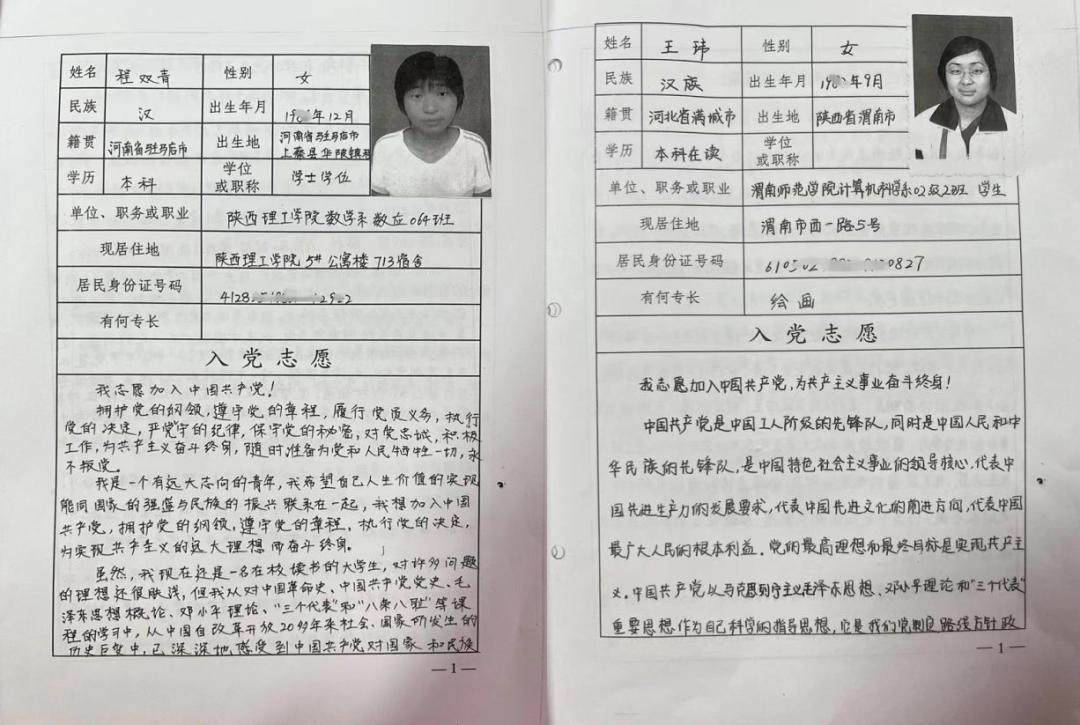 姓名 程双青 性别 女
民族 汉 出生年月 19 年12月
籍贯 河南省驻马店市 出生地 河南省驻马店市
上蔡县华陂镇
学历 本科 学位
或职称 学士学位
单位、职务或职业 陕西理工学院数学系数应064班
现居住地 陕西理工学院5#公寓楼713宿舍
居民身份证号码
有何专长
入党志愿
我志愿加入中国共产党!
拥护党的纲领,遵守党的章程,履行党员义务,执行
党的决定,严守党的纪律,保守党的秘密,对党忠诚,积极
工作,为共产主义奋斗终身,随时准备为党和人民牺牲一切,永
不叛党。
我是一个有远大志向的青年,我希望自己人生价值的实现
能同国家的强盛与民族的振兴联系在一起,我想加入中国
共产党,拥护党的纲领,遵守党的章程,执行党的决定,
为实现共产主义的远大理想而奋斗终身。
虽然,我现在还是一名在校读书的大学生,对许多问题
的理想还很肤浅,但我从对中国革命史、中国共产党党史、毛
泽东思想概论、邓小平理论、“三个代表”和“八荣八耻”等课
程的学习中,从中国自改革开放20多年来社会、国家所发生的
历史巨变中,已深深地感受到中国共产党对国家和民族
— 1 —
姓名 王玮 性别 女
民族 汉族 出生年月 19 年9月
籍贯 河北省满城市 出生地 陕西省渭南市
学历 本科在读 学位
或职称
单位、职务或职业 渭南师范学院计算机科学系02级2班 学生
现居住地 渭南市西一路5号
居民身份证号码
有何专长 绘画
入党志愿
我志愿加入中国共产党,为共产主义事业奋斗终身!
中国共产党是中国工人阶级的先锋队,同时是中国人民和中
华民族的先锋队,是中国特色社会主义事业的领导核心,代表中
国先进生产力的发展要求,代表中国先进文化的前进方向,代表中国
最广大人民的根本利益。党的最高理想和最终目标是实现共产主
义。中国共产党以马克思列宁主义毛泽东思想、邓小平理论和“三个代表”
重要思想作为自己科学的指导思想,它是我们党制定路线方针政
— 1 —